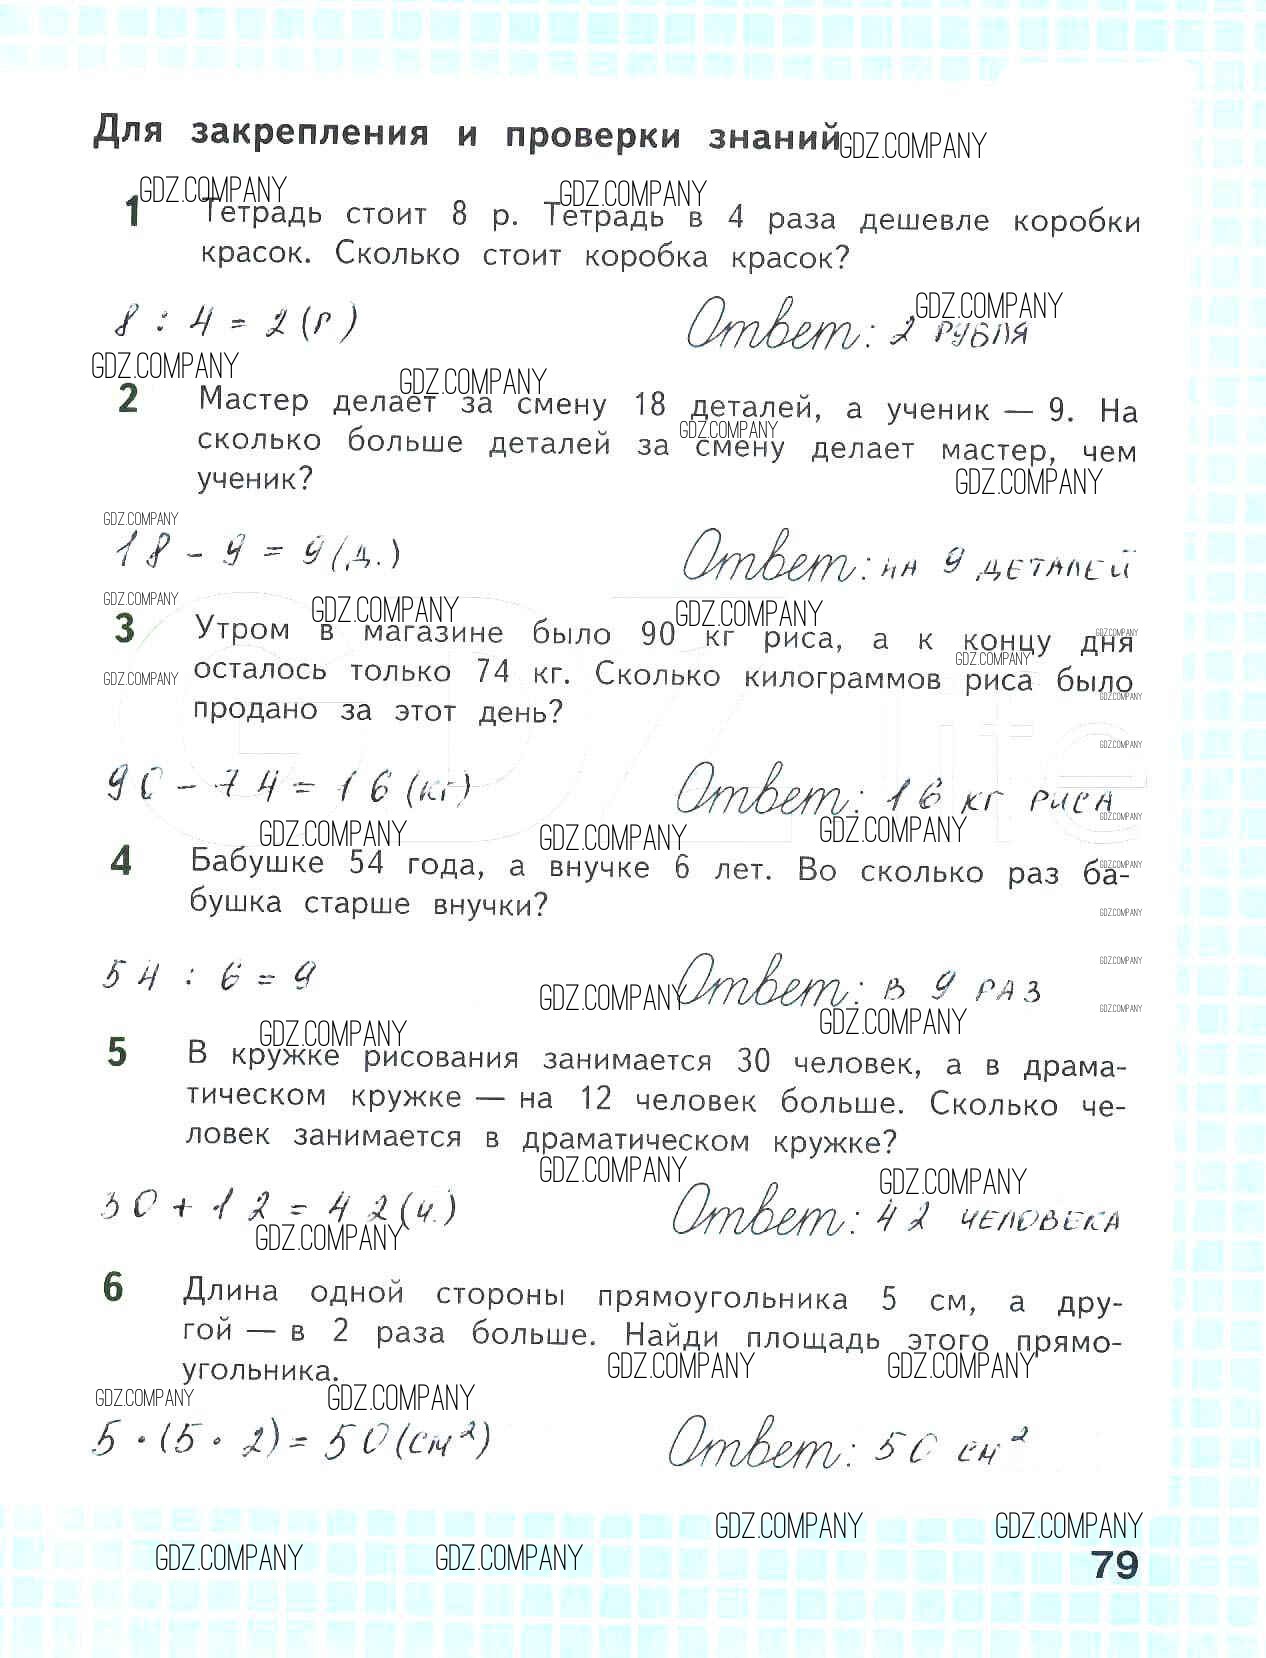 Для закрепления и проверки знаний GDZ.COMPANY
GDZ.COMPANY GDZ.COMPANY
1 Тетрадь стоит 8 р. Тетрадь в 4 раза дешевле коробки
красок. Сколько стоит коробка красок?
GDZ.COMPANY
8 : 4 = 2 (р) Ответ: 2 РУБЛЯ
GDZ.COMPANY GDZ.COMPANY
2 Мастер делает за смену 18 деталей, а ученик — 9. На
GDZ.COMPANY
сколько больше деталей за смену делает мастер, чем
ученик? GDZ.COMPANY
GDZ.COMPANY
18 - 9 = 9 (д.) Ответ: НА 9 ДЕТАЛЕЙ
GDZ.COMPANY GDZ.COMPANY GDZ.COMPANY
3 Утром в магазине было 90 кг риса, а к концу дня
GDZ.COMPANY
GDZ.COMPANY
осталось только 74 кг. Сколько килограммов риса было
GDZ.COMPANY GDZ.COMPANY
продано за этот день?
GDZ life
GDZ.COMPANY
90 - 74 = 16 (кг) Ответ: 16 КГ РИСА
GDZ.COMPANY GDZ.COMPANY GDZ.COMPANY GDZ.COMPANY
4 Бабушке 54 года, а внучке 6 лет. Во сколько раз ба-
GDZ.COMPANY
бушка старше внучки?
GDZ.COMPANY
GDZ.COMPANY
54 : 6 = 9 Ответ: В 9 РАЗ
GDZ.COMPANY GDZ.COMPANY
GDZ.COMPANY GDZ.COMPANY
5 В кружке рисования занимается 30 человек, а в драма-
тическом кружке — на 12 человек больше. Сколько че-
ловек занимается в драматическом кружке?
GDZ.COMPANY GDZ.COMPANY
30 + 12 = 42 (ч.) Ответ: 42 ЧЕЛОВЕКА
GDZ.COMPANY
6 Длина одной стороны прямоугольника 5 см, а дру-
гой — в 2 раза больше. Найди площадь этого прямо-
угольника. GDZ.COMPANY GDZ.COMPANY
GDZ.COMPANY GDZ.COMPANY
5 · (5 · 2) = 50 (см²) Ответ: 50 см²
GDZ.COMPANY GDZ.COMPANY
GDZ.COMPANY GDZ.COMPANY
79